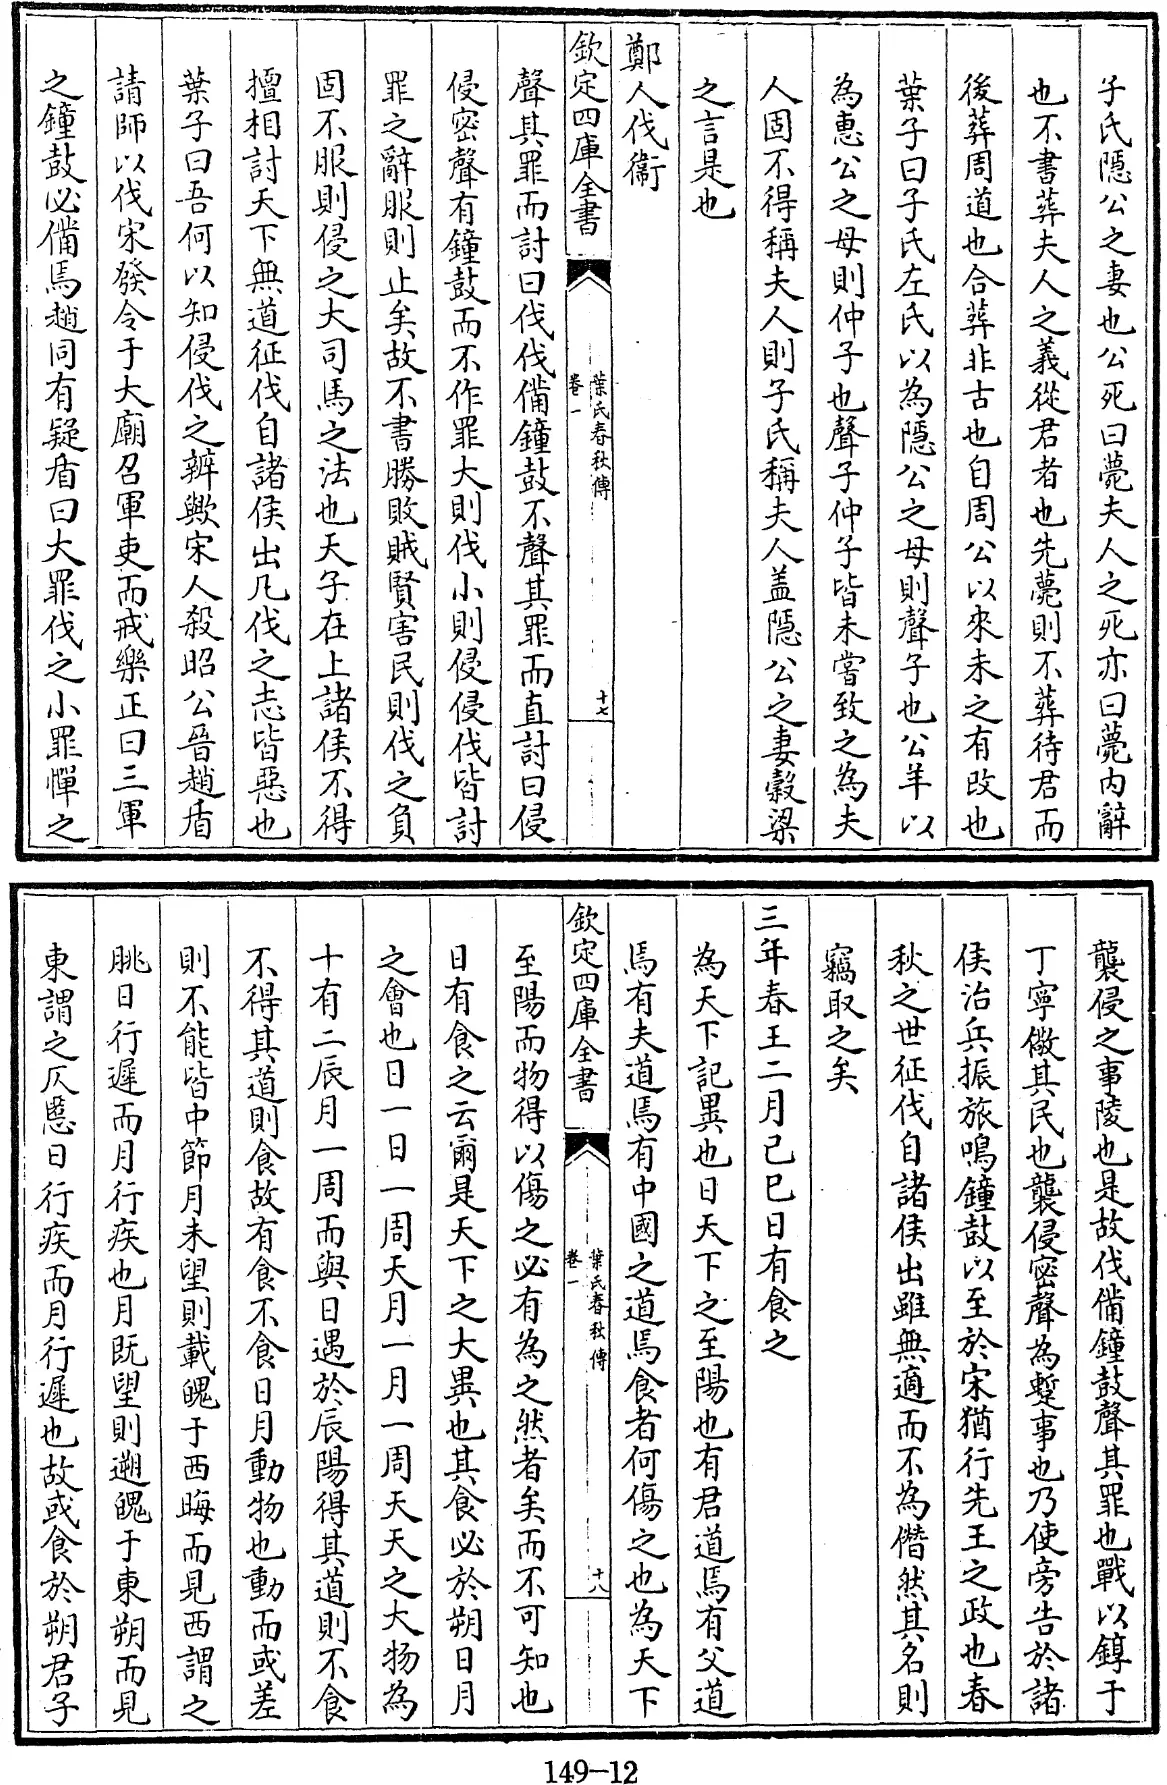 子氏隱公之妻也公死曰薨夫人之死亦曰薨内辭
也不書葬夫人之義從君者也先薨則不葬待君而
後葬周道也合葬非古也自周公以來未之有改也
葉子曰子氏左氏以為隱公之母則聲子也公羊以
為惠公之母則仲子也聲子仲子皆未嘗致之為夫
人固不得稱夫人則子氏稱夫人盖隱公之妻榖梁
之言是也
鄭人伐衞
欽定四庫全書
葉氏春秋傳
卷一
十七
聲其罪而討曰伐伐備鐘鼓不聲其罪而直討曰侵
侵密聲有鐘鼓而不作罪大則伐小則侵侵伐皆討
罪之辭服則止矣故不書勝敗賊賢害民則伐之負
固不服則侵之大司馬之法也天子在上諸侯不得
擅相討天下無道征伐自諸侯出凡伐之志皆惡也
葉子曰吾何以知侵伐之辨歟宋人殺昭公晉趙盾
請師以伐宋發令于大廟召軍吏而戒樂正曰三軍
之鐘鼓必備焉趙同有疑盾曰大罪伐之小罪憚之
襲侵之事陵也是故伐備鐘鼓聲其罪也戰以錞于
丁寧儆其民也襲侵密聲為蹔事也乃使旁告於諸
侯治兵振旅鳴鐘鼓以至於宋猶行先王之政也春
秋之世征伐自諸侯出雖無適而不為僭然其名則
竊取之矣
三年春王二月己巳日有食之
為天下記異也日天下之至陽也有君道焉有父道
焉有夫道焉有中國之道焉食者何傷之也為天下
欽定四庫全書
葉氏春秋傳
卷一
十八
至陽而物得以傷之必有為之然者矣而不可知也
日有食之云爾是天下之大異也其食必於朔日月
之會也日一日一周天月一月一周天天之大物為
十有二辰月一周而與日遇於辰陽得其道則不食
不得其道則食故有食不食日月動物也動而或差
則不能皆中節月未望則載魄于西晦而見西謂之
朓日行遲而月行疾也月既望則遡魄于東朔而見
東謂之仄慝日行疾而月行遲也故或食於朔君子
149-12